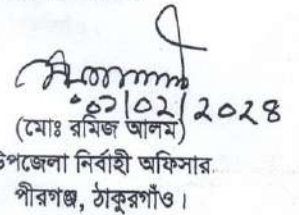 ০১/০২/২০২৪
(মোঃ রমিজ আলম)
উপজেলা নির্বাহী অফিসার
পীরগঞ্জ, ঠাকুরগাঁও।